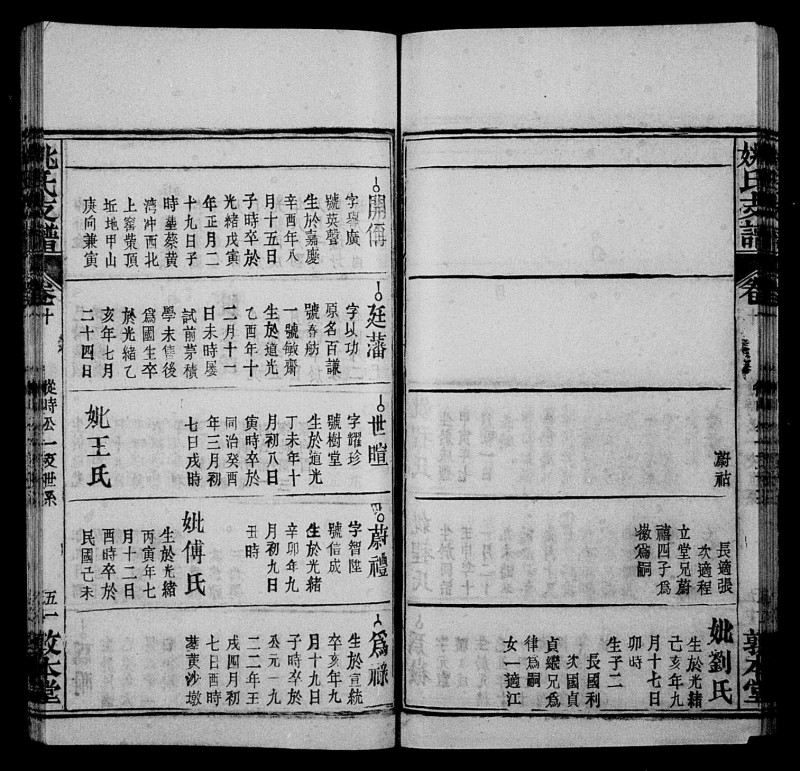 姚氏支譜
卷十
蔚祜
長適張
次適程
立堂兄蔚
禧四子爲
徽爲嗣
妣劉氏
生於光緒
己亥年九
月十七日
卯時
生子二
長國利
次國貞
貞繼兄爲
律爲嗣
女一適江
敦本堂
開儔
字學廣
號英聲
生於嘉慶
辛酉年八
月十五日
子時卒於
光緒戊寅
年正月二
十九日子
時塟蔡黃
灣冲西北
上窰柴頂
坵地甲山
庚向兼寅
廷藩
字以功
原名百謙
號春舫
一號敏齋
生於道光
乙酉年十
二月十一
日未時屡
試前茅積
學未售後
爲國生卒
於光緒乙
亥年七月
二十四日
世暄
字耀珍
號樹堂
生於道光
丁未年十
月初八日
寅時卒於
同治癸酉
年三月初
七日戌時
妣王氏
蔚禮
字智陞
號信成
生於光緒
辛卯年九
月初九日
丑時
妣傅氏
生於光緒
丙寅年七
月十二日
酉時卒於
民國己未
爲祿
生於宣統
辛亥年九
月十九日
子時卒於
公元一九
二二年壬
戌四月初
七日酉時
塟黄沙墩
姚氏支譜
卷十
從時公一支世系
五一
敦本堂